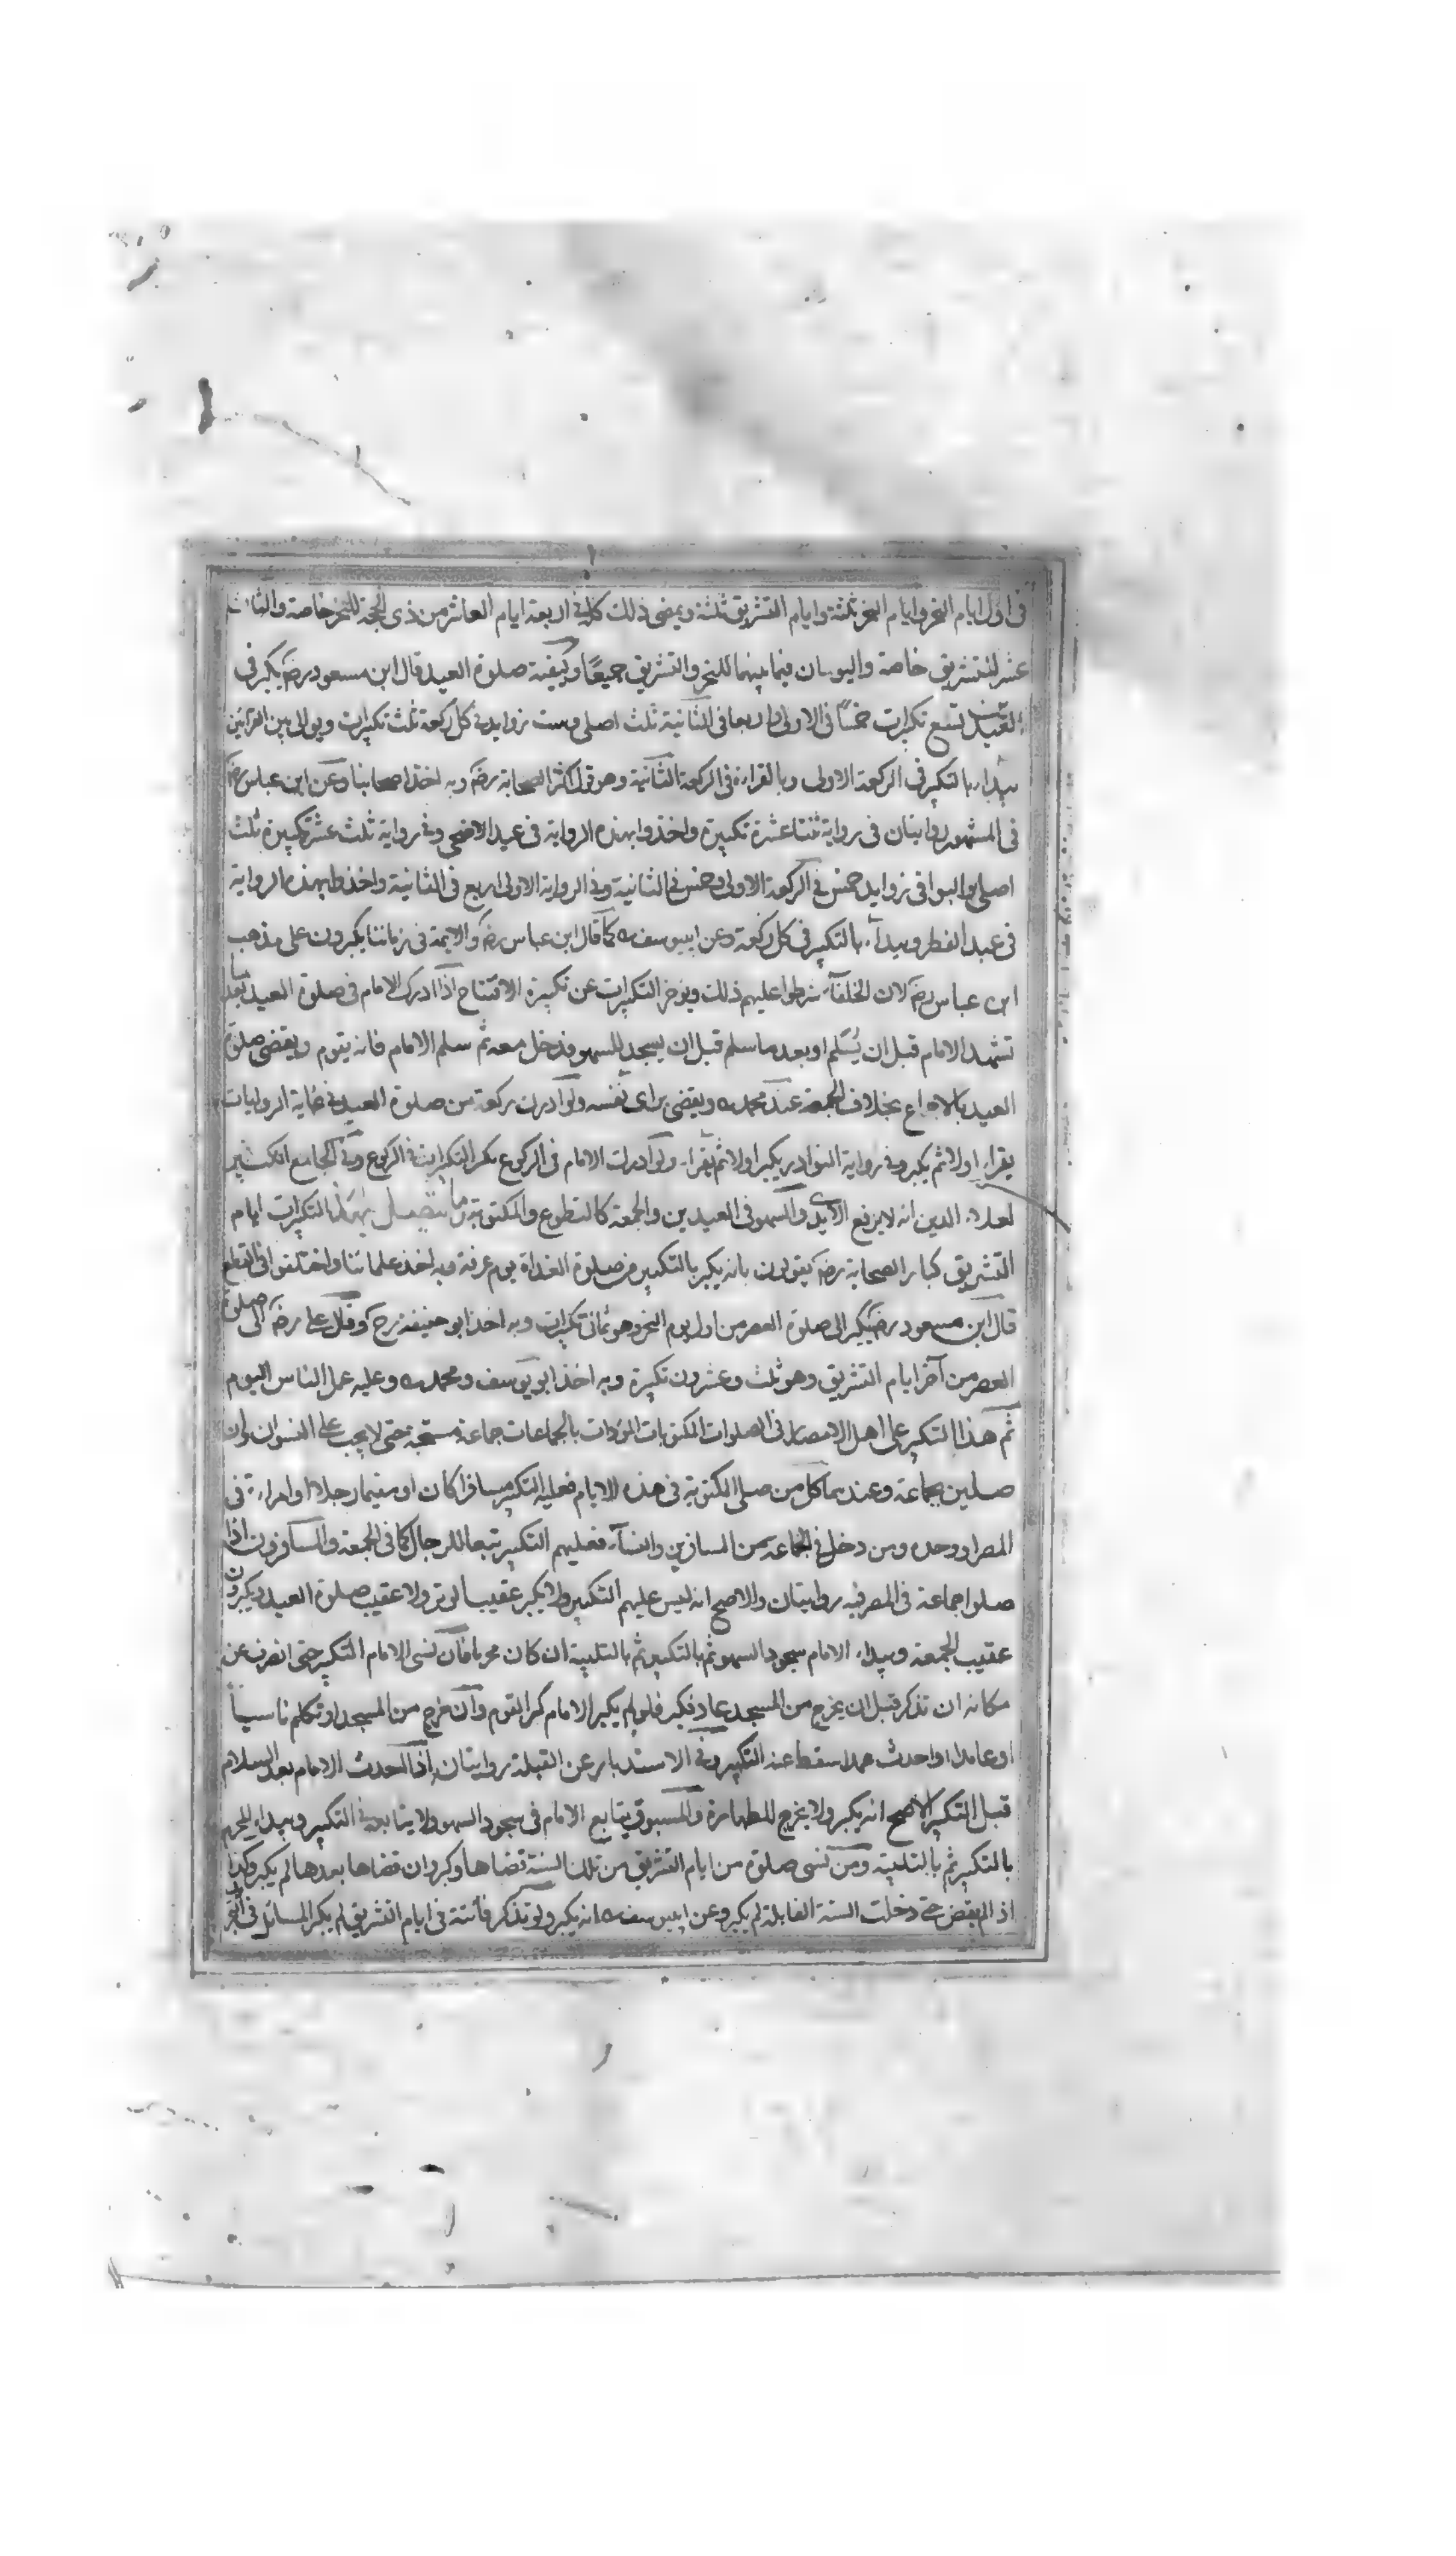 فى اول ايام النحر وايام النحر ثلثة وايام التشريق ثلثة ويمضى ذلك كله فى اربعة ايام العاشر من ذى الحجة للنحر خاصة والثالث
عشر للتشريق خاصة واليومان فيما بينهما للنحر والتشريق جميعًا وكيفية صلوة العيد قال ابن مسعود رضـ يكبر فى
العيدين تسع تكبرات خمسًا فى الاولى واربعا فى الثانية ثلث اصلى وست زوايد فى كل ركعة ثلث تكبيرات ويوالى بين القرائتين
يبداء بالتكبير فى الركعة الاولى وبالقراءة فى الركعة الثانية وهو قول اكثر الصحابة رضـ وبه اخذ اصحابنا وعن ابن عباس رضـ
فى المشهور روايتان فى رواية ثنتا عشرة تكبيرة واخذوا بهذه الرواية فى عيد الاضحى وفى رواية ثلث عشر تكبيرة ثلث
اصلى والبواقى زوايد خمس فى الركعة الاولى وخمس فى الثانية وفى الرواية الاولى اربع فى الثانية واخذوا بهذه الرواية
فى عيد الفطر ويبدأ بالتكبير فى كل ركعة وعن ابييوسف كما قال ابن عباس رضـ والايمة فى زماننا يكبرون على مذهب
ابن عباس رضـ لان الخلفآء شرطوا عليهم ذلك ويؤخر التكبيرات عن تكبيرة الافتتاح اذا ادرك الامام فى صلوة العيد بعد ما
تشهد الامام قبل ان يسلم او بعد ما سلم قبل ان يسجد للسهو فدخل معه ثم سلم الامام فانه يقوم ويقضى صلوة
العيد بالاجماع بخلاف الجمعة عند محمد ويقضى براى نفسه ولو ادرك ركعة من صلوة العيد فى عامة الروايات
يقراء اولا ثم يكبر وفى رواية النوادر يكبر اولا ثم يقراء ولو ادرك الامام فى الركوع يكبر التكبيرات فى الركوع وفى الجامع الكبير
لعلاء الدين انه لا يرفع الايدى والسهو فى العيدين والجمعة كالتطوع والمكتوبة وما يتصل بهذا التكبرات ايام
التشريق كبار الصحابة رضـ يقولون بانه يكبر بالتكبير من صلوة الغداة يوم عرفة وبه اخذ علمائنا واختلفوا فى القطع
قال ابن مسعود رضـ يكبر الى صلوة العصر من اول يوم النحر وهو ثمان تكبرات وبه اخذ ابو حنيفة رح وقال على رضـ الى صلوة
العصر من آخر ايام التشريق وهو ثلث وعشرون تكبيرة وبه اخذ ابو يوسف ومحمد وعليه عمل الناس اليوم
ثم هذا التكبير على اهل الامصار فى الصلوات المكتوبات المؤدات بالجماعات جماعة مستحبة حتى لا يجب على النسوان وان
صلين بجماعة وعندهما كل من صلى المكتوبة فى هذه الايام فعليه التكبير مسافرا كان او مقيما رجلا او امراءة فى
المصر او وحده ومن دخل فى الجماعة من المسافرين والنسآء فعليهم التكبير تبعا للرجال كما فى الجمعة والمسافرون اذا
صلوا جماعة فى المصر فيه روايتان والاصح انه ليس عليهم التكبير ولا يكبر عقيب الوتر ولا عقيب صلوة العيد ويكبرون
عقيب الجمعة ويبداء الامام سجود السهو ثم بالتكبير ثم بالتلبية ان كان محرما فان نسى الامام التكبير حتى انصرف عن
مكانه ان تذكر قبل ان يخرج من المسجد عاد فكبر فلو لم يكبر الامام كبر القوم وان خرج من المسجد او تكلم ناسياً
او عامدا او احدث عمدا سقط عنه التكبير وفى الاستدبار عن القبلة روايتان واذا احدث الامام بعد السلام
قبل التكبير الاصح انه يكبر ولا يخرج للطهارة والمسبوق يتابع الامام فى سجود السهو ولا يتابعه فى التكبير ويبداء المحرم
بالتكبير ثم بالتلبية ومن نسى صلوة من ايام التشريق من تلك السنة قضاها وكبر وان قضاها بعدها لم يكبر وكذا
اذا لم يقض حتى دخلت السنة القابلة لم يكبر وعن ابييوسف انه يكبر ولو تذكر فائتة فى ايام التشريق لم يكبر المسائل فى